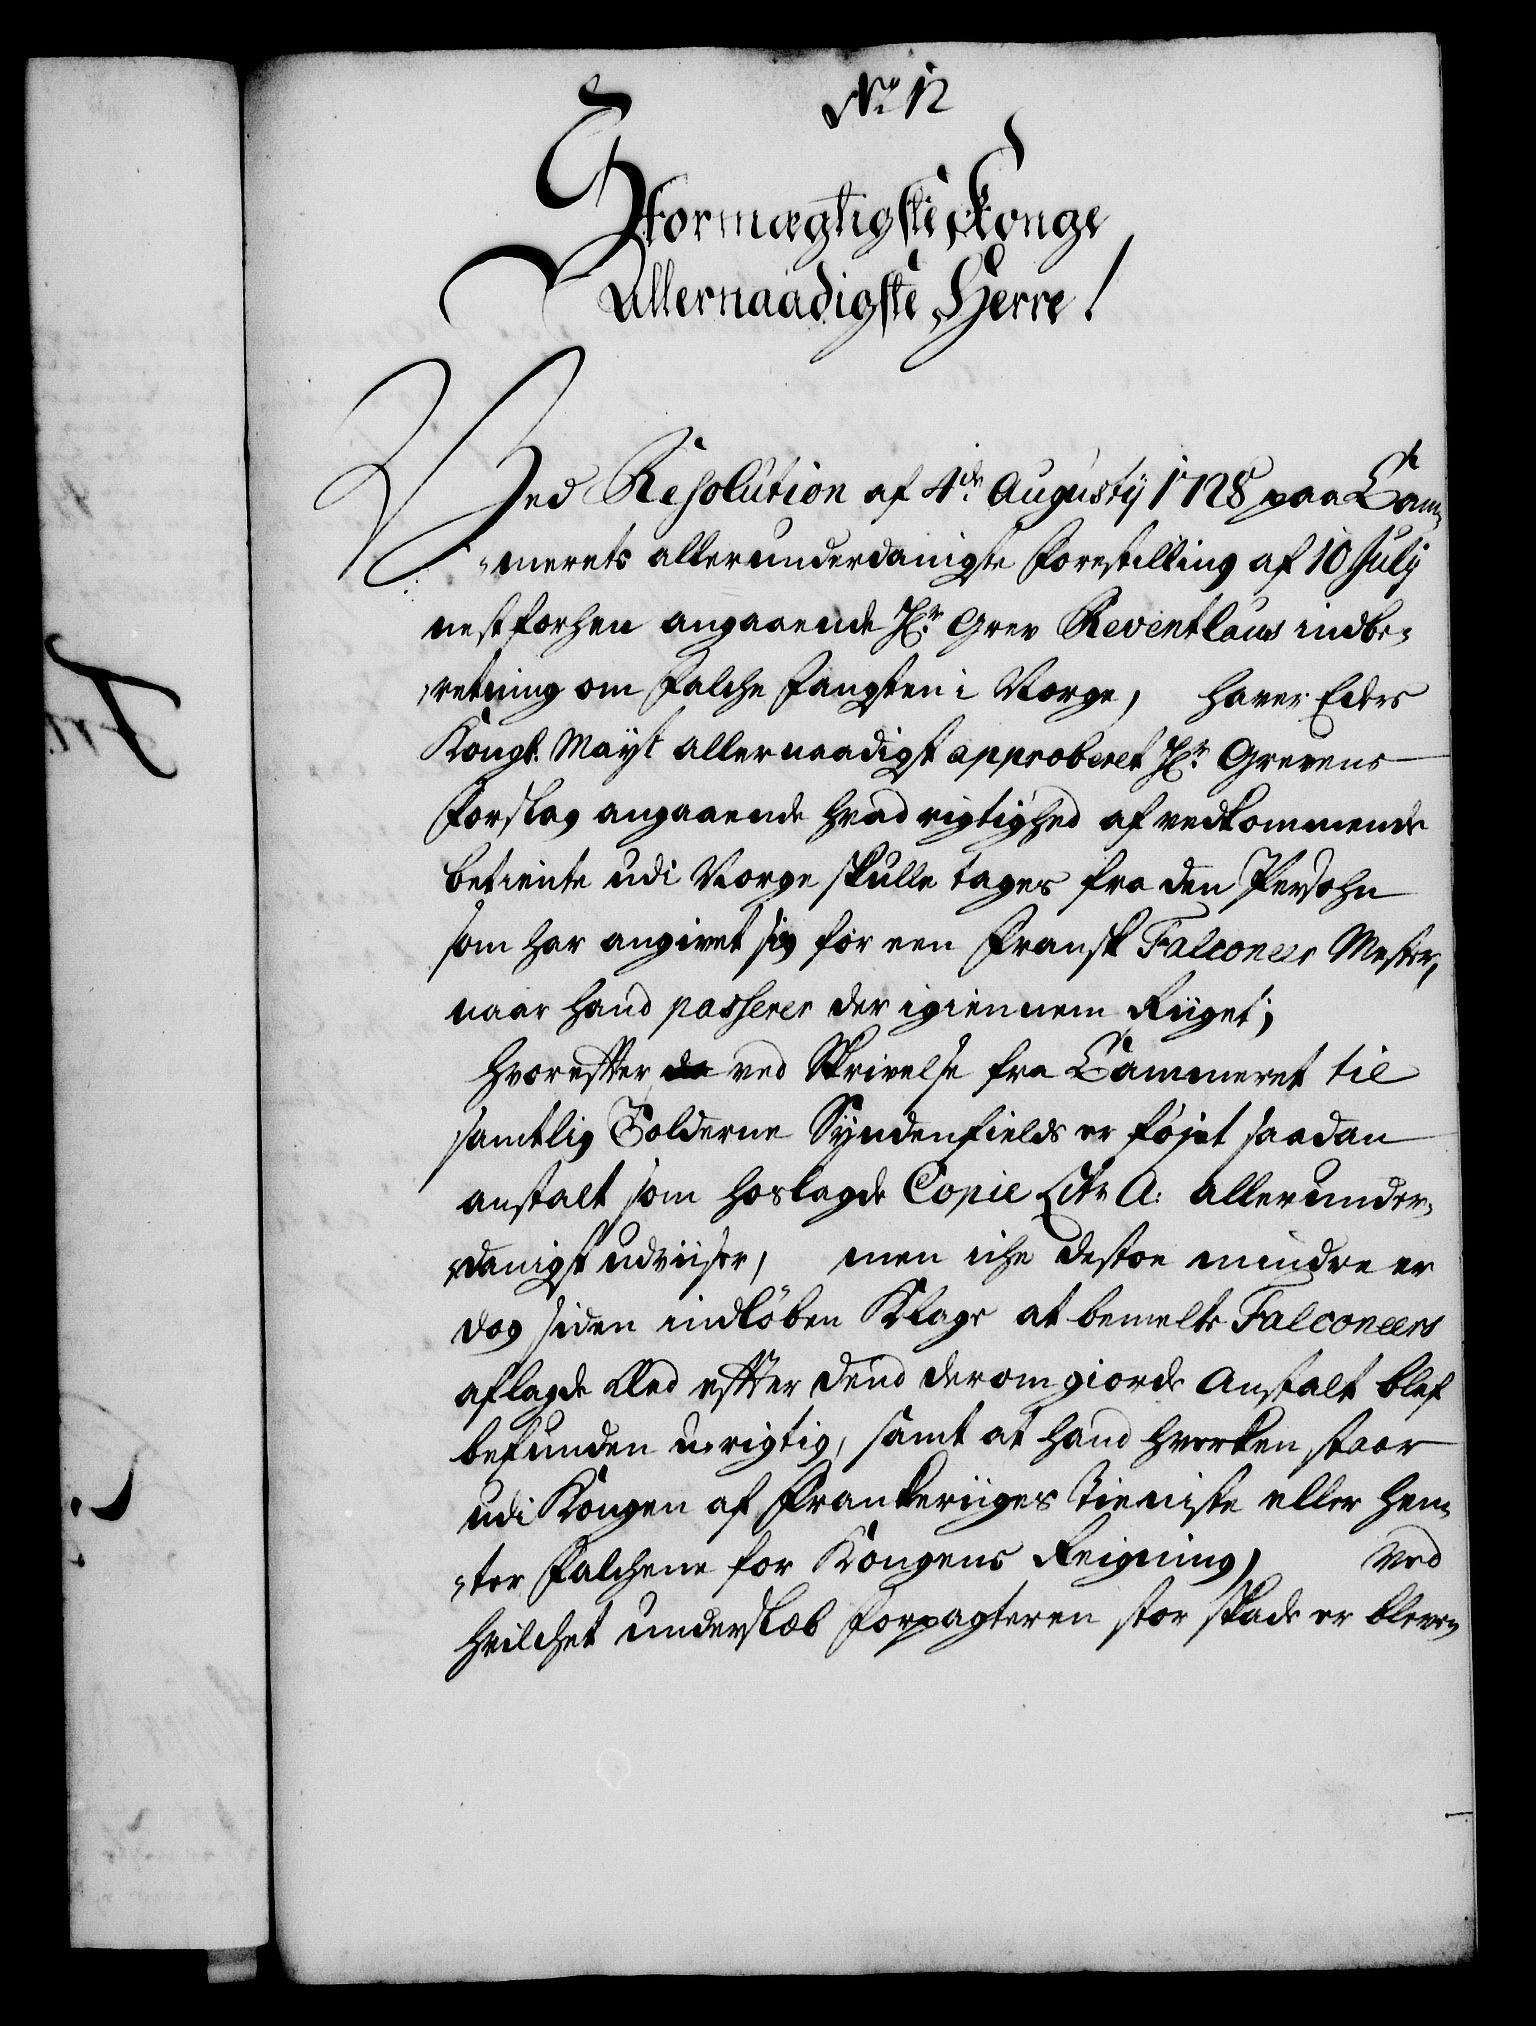 No 12
Stormægtigste Konge
Allernaadigste Herre!
Ved Resolution af 4de Augustij 1728 paa Cam-
merets allerunderdanigste Forestilling af 10 Julij
nest forhen angaaende Hr. Grev Reventlaus indbe-
retning om Falche Fangsten i Norge, haver Eders
Kongl. Mayst allernaadigst approberet Hr. Grevens
Forslag angaaende hvad rigtighed af vedkommende
betiente udi Norge skulle tages fra den Persohn
som har angivet sig for een Fransk Falconeer Mester,
naar hand passerer der igiennem Riiget;
hvorefter da ved Skrivelse fra Cammeret til
samtlig Tolderne Syndenfields er føjet saadan
anstalt som hoslagde Copie Litr. A: allerunder-
danigst udviiser, men iche destoe mindre er
dog siden indløben Klage at bemelte Falconeers
aflagde Eed efter dend derom giorde Anstalt blef
befunden urigtig, samt at hand hverken staar
udi Kongen af Frankeriiges Tieniste eller hen-
ter Falchene for Kongens Reigning, ved
hvilchet underslæb Forpagteren stor skade er bleven